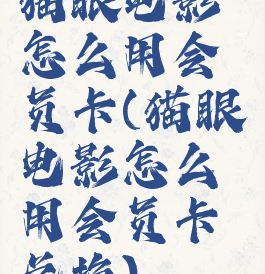 猫眼电影
怎么用会
员卡(猫眼
电影怎么
用会员卡